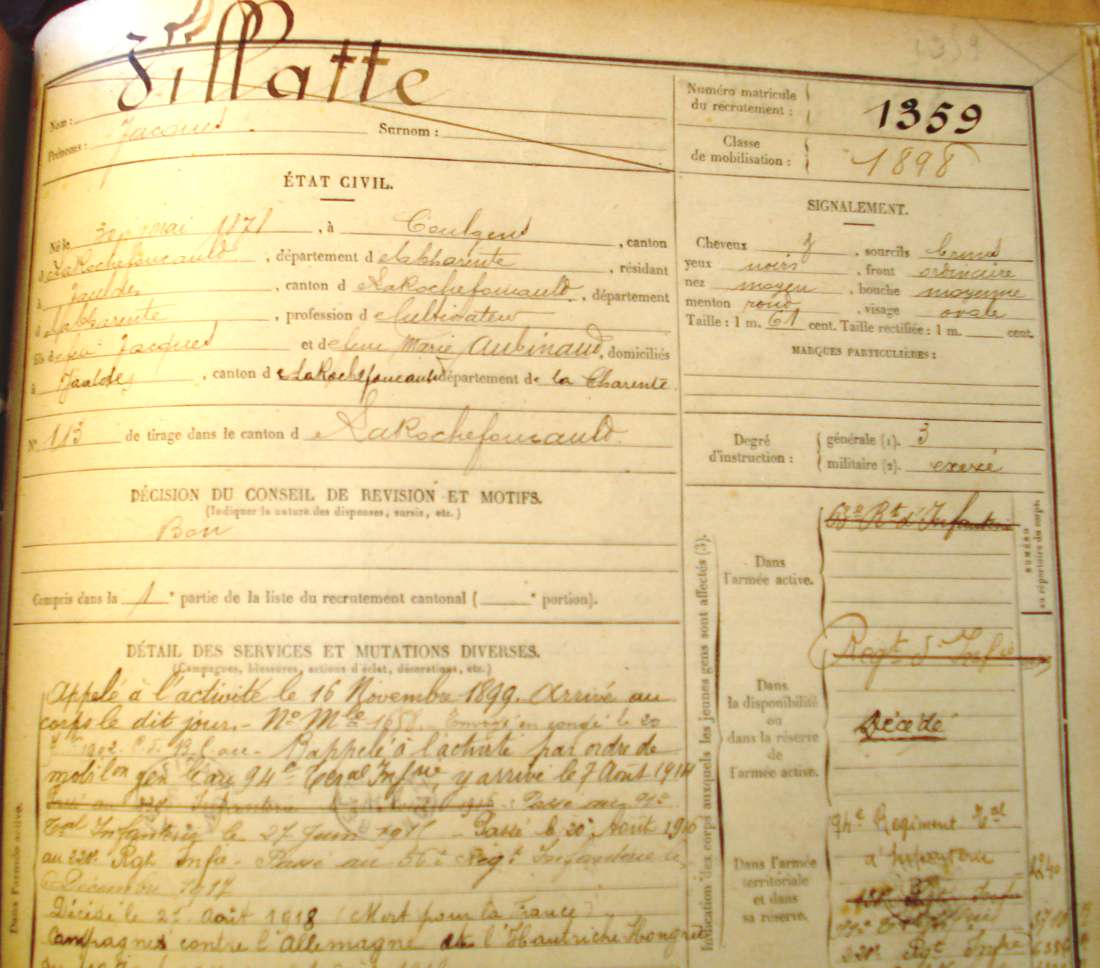 1359
Villatte
Nom :
Prénoms : Jacques Surnom :
Numéro matricule du recrutement : 1359
Classe de mobilisation : 1898
ÉTAT CIVIL.
Né le mai 1878, à Coulgens, canton
d LaRochefoucauld, département d e la Charente, résidant
à Jauldes, canton d e LaRochefoucauld, département
d e la Charente, profession d e Cultivateur
fils de feu Jacques et de feue Marie Aubinaud, domiciliés
à Jauldes, canton d e LaRochefoucauld département de la Charente.
N° 113 de tirage dans le canton d e LaRochefoucauld.
SIGNALEMENT.
Cheveux, sourcils bruns
yeux noirs, front ordinaire
nez moyen, bouche moyenne
menton rond, visage ovale
Taille : 1 m. 61 cent. Taille rectifiée : 1 m. cent.
MARQUES PARTICULIÈRES :
Degré d'instruction : générale (1). 3
militaire (2). exercé
DÉCISION DU CONSEIL DE REVISION ET MOTIFS.
(Indiquer la nature des dispenses, sursis, etc.)
Bon
Compris dans la 1e partie de la liste du recrutement cantonal ( e portion).
DÉTAIL DES SERVICES ET MUTATIONS DIVERSES.
(Campagnes, blessures, actions d'éclat, décorations, etc.)
Appelé à l'activité le 16 Novembre 1899. Arrivé au
corps le dit jour. - No Mle Envoyé en congé le 20
1902. Rappelé à l'activité par ordre de
mobilon génle au 94e Teral Infie, y arrivé le 7 Août 1914
Infanterie 1915. Passé au
Tal Infanterie le 27 Juin Passé le 20 Août 1916
au 338e Rgt Infie - Passé au Régt Infanterie le
Décembre 1917
Décédé le Août 1918 (Mort pour la France)
Campagnes contre l'Allemagne et l'Hautriche Hongrie
Dans l'armée active.
Indication des corps auxquels les jeunes gens sont affectés (3).
Dans l'armée active.
63e Rt d'Infanterie
NUMÉRO au répertoire du corps.
Dans la disponibilité ou dans la réserve de l'armée active.
Regt d'Infie
Décédé
Dans l'armée territoriale et dans sa réserve.
94e Régiment Tal
d'Infanterie
Rgt Infie